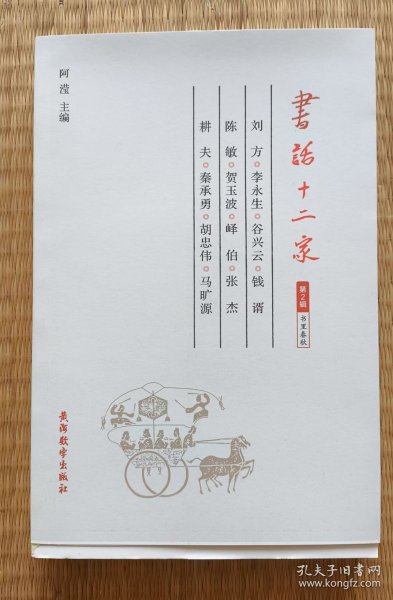 書話十二家
第2辑
书里春秋
刘方·李永生·谷兴云·钱谞
陈敏·贺玉波·峄伯·张杰
耕夫·秦承勇·胡忠伟·马旷源
阿滢 主编
黄河数字出版社
孔夫子旧书网
www.kongfz.com